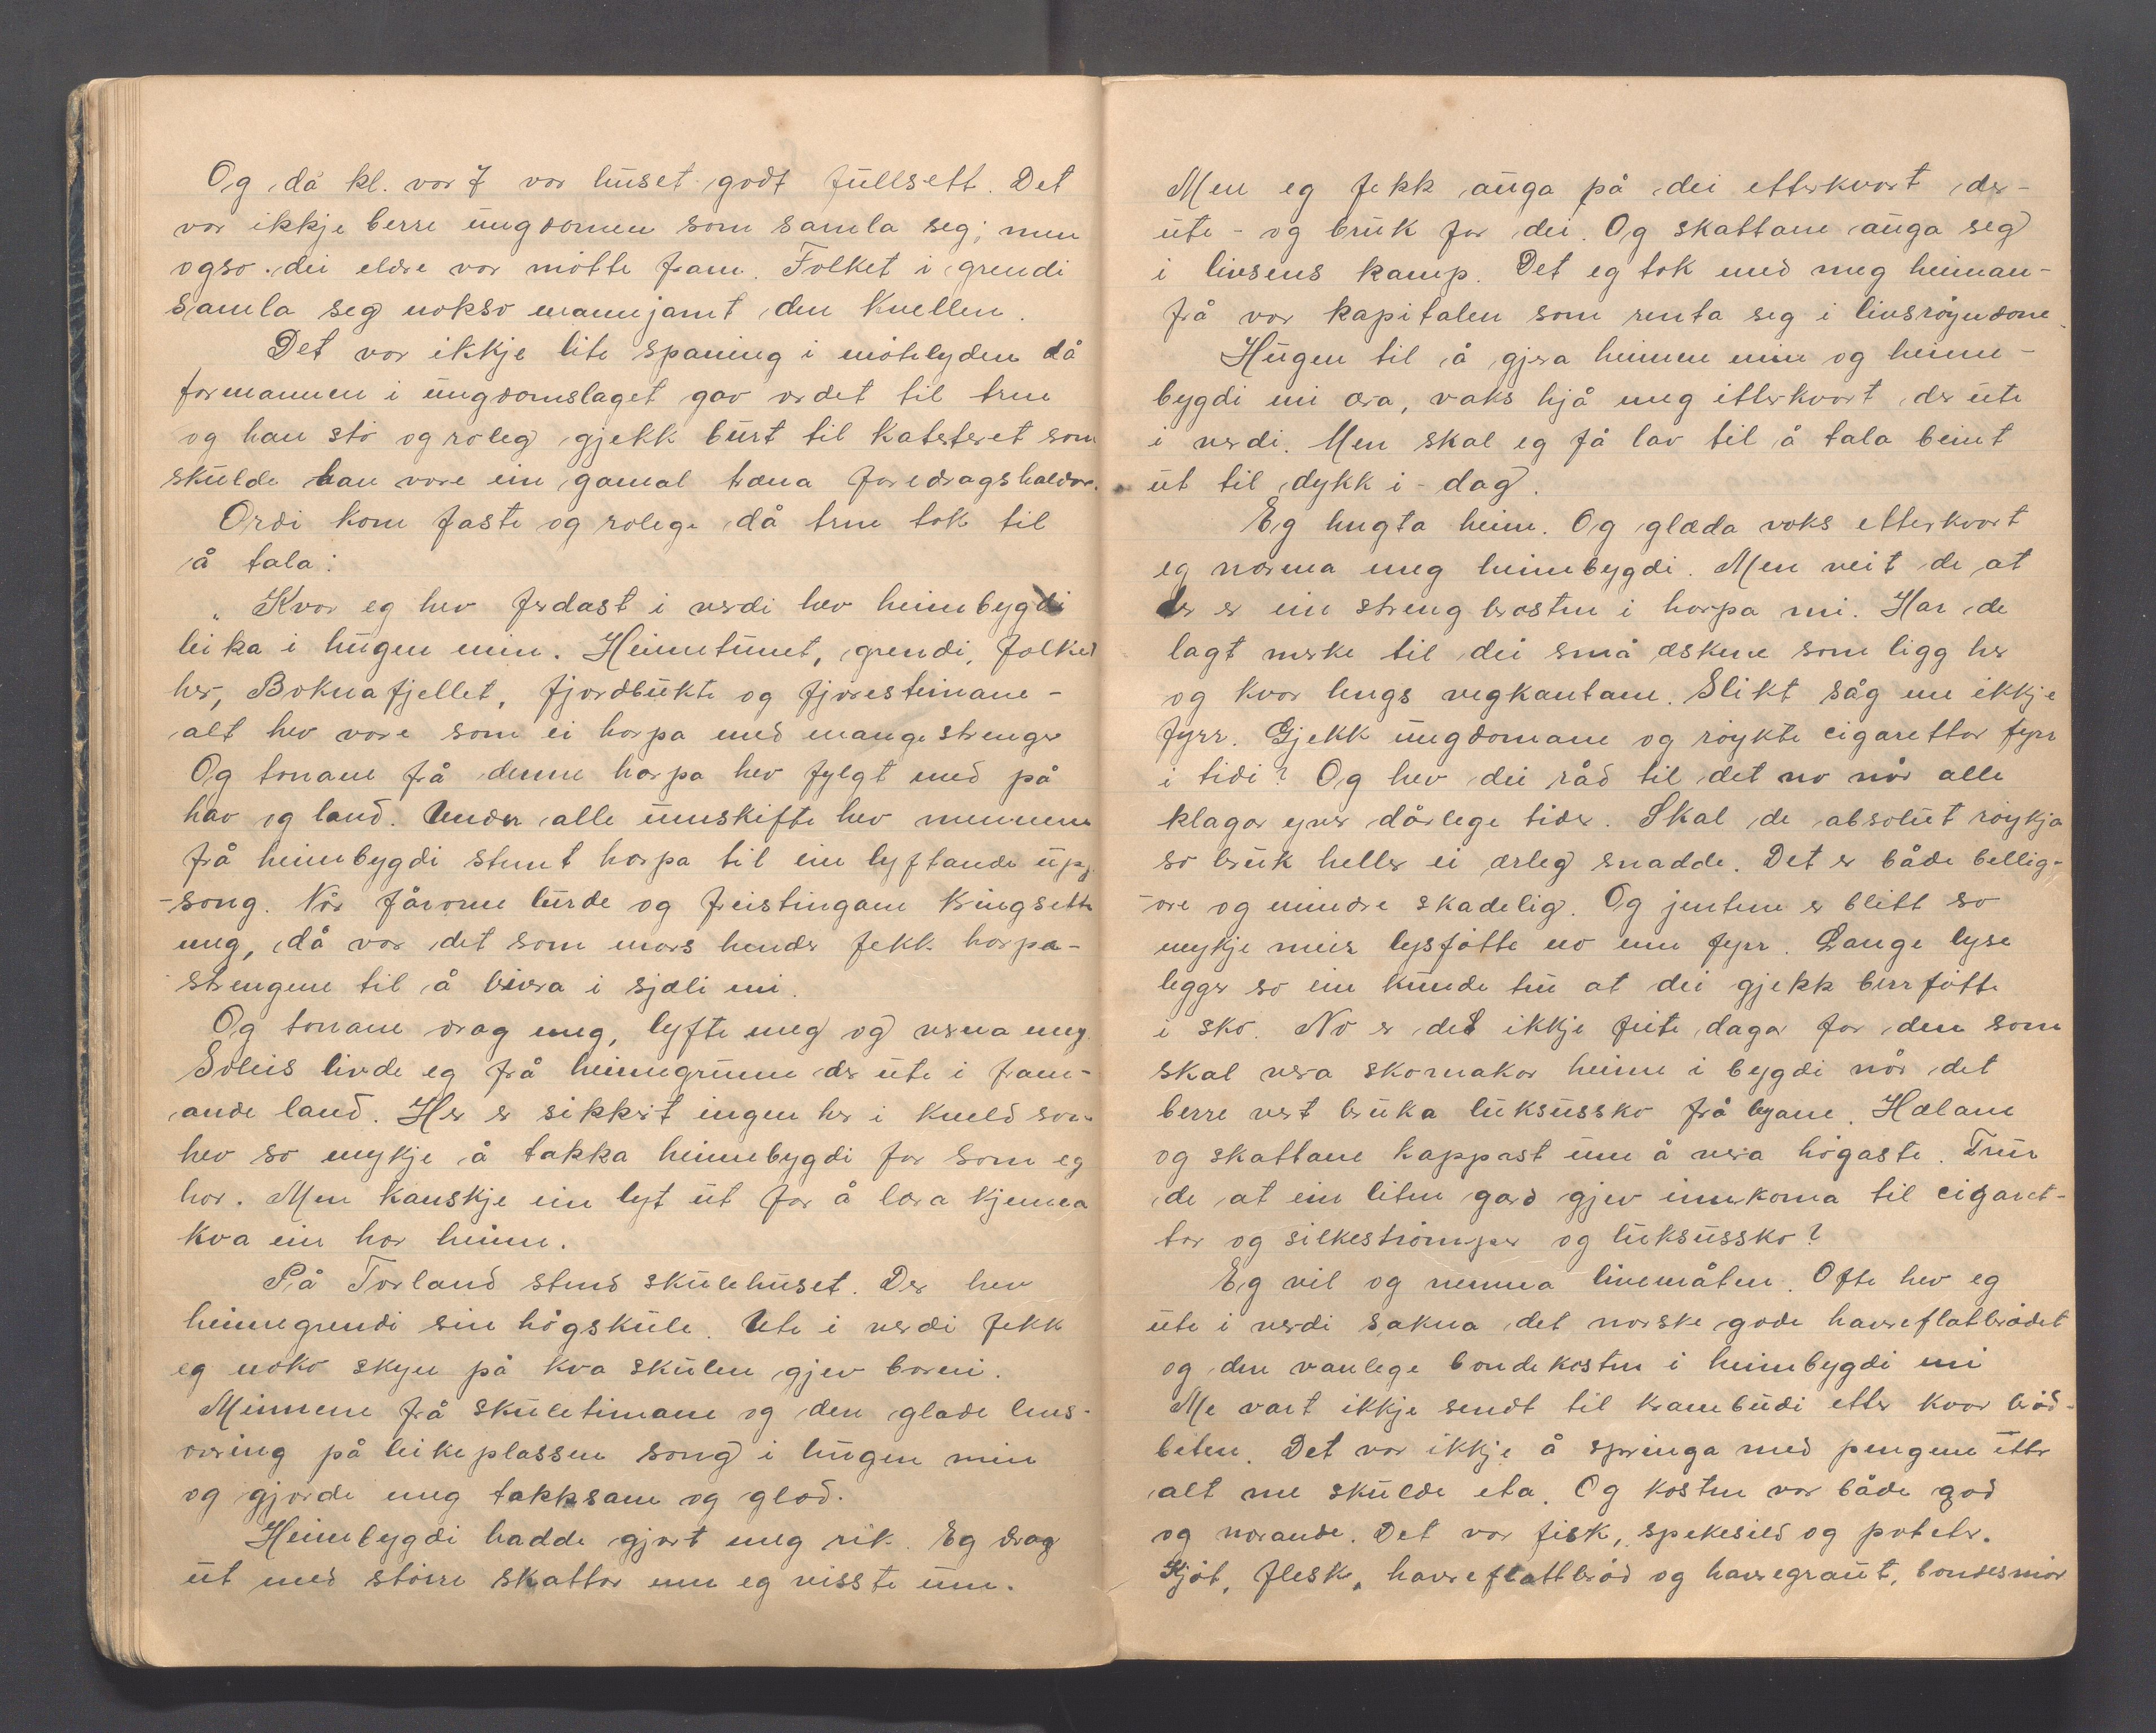 Og då kl. var 7 var huset godt fullsett. Det
var ikkje berre ungdomen som samla seg; men
ogso dei eldre var møtte fram. Folket i grendi
samla seg nokso mannjamt den kvellen.
Det var ikkje lite spaning i møtelyden då
formannen i ungdomslaget gav ordet til
og han stø og roleg gjekk burt til kateteret som
skulde han vore ein gamal træna foredragshaldar.
Ordi kom faste og rolege då tok til
å tala:
„Kvar eg hev ferdast i verdi hev heimbygdi
leika i hugen min. Heimetunet, grendi, folket
her, Boknafjellet, fjordbukti og fjøresteinane -
alt hev vore som ei horpa med mange strenger
Og tonane frå denne horpa hev fylgt med på
hav og land. Under alle umskifte hev minnene
frå heimbygdi stemt horpa til ein lyftande upp-
-song. Når fårorne lurde og freistingane kringsette
meg, då var det som mors hender fekk horpa-
strengene til å bivra i sjæli mi.
Og tonane drog meg, lyfte meg og verna meg.
Soleis livde eg frå heimegrunnen der ute i fram-
ande land. Her er sikkert ingen her i kveld som
hev so mykje å takka heimebygdi for som eg
har. Men kanskje ein lyt ut for å læra kjenna
kva ein har heime.
På Torland stend skulehuset. Der hev
heimegrendi sin høgskule. Ute i verdi fekk
eg noko skyn på kva skulen gjev borni.
Minnene frå skuletimane og den glade
på leikeplassen song i hugen min
og gjorde meg takksam og glad.
Heimbygdi hadde gjort meg rik. Eg drog
ut med større skattar enn eg visste um.
Men eg fekk auga på dei etterkvart der-
ute - og bruk for dei. Og skattane auga seg
i livsens kamp. Det eg tok med meg heiman-
frå var kapitalen som renta seg i livsrøyndone.
Hugen til å gjera heimen min og heime-
bygdi mi æra, vaks hjå meg etterkvart der ute
i verdi. Men skal eg få lov til å tala beint
ut til dykk i-dag.
Eg lengta heim. Og glæda voks etterkvart
eg nærma meg heimbygdi. Men veit de at
der er ein streng brosten i horpa mi. Har de
lagt merke til dei små øskene som ligg her
og kvar lengs vegkantane. Slikt såg me ikkje
fyrr. Gjekk ungdomane og røykte cigarettar fyrr
i tidi? Og hev dei råd til det no når alle
klagar yver dårlege tider. Skal de absolut røykja
so bruk heller ei ærleg snadde. Det er både billig-
are og mindre skadelig. Og jentene er blitt so
mykje meir lysføtte no enn fyrr. Lange lyse
legger so ein kunde tru at dei gjekk berrføtte
i sko. No er det ikkje feite dagar for den som
skal vera skomakar heime i bygdi når det
berre vert bruka luksussko frå byane. Hælane
og skattane kappast um å vera høgaste. Trur
de at ein liten gard gjev innkoma til cigaret-
tar og silkestrømper og luksussko?
Eg vil og nemna livemåten. Ofte hev eg
ute i verdi sakna det norske gode havreflatbrødet
og den vanlege bondekosten i heimbygdi mi
Me vart ikkje sendt til krambudi etter kvar brød-
beten. Det var ikkje å springa med pengene etter
alt me skulde eta. Og kosten var både god
og nærande. Det var fisk, spekesild og poteter.
Kjøt, flesk, havreflattbrød og havregraut, bondesmør